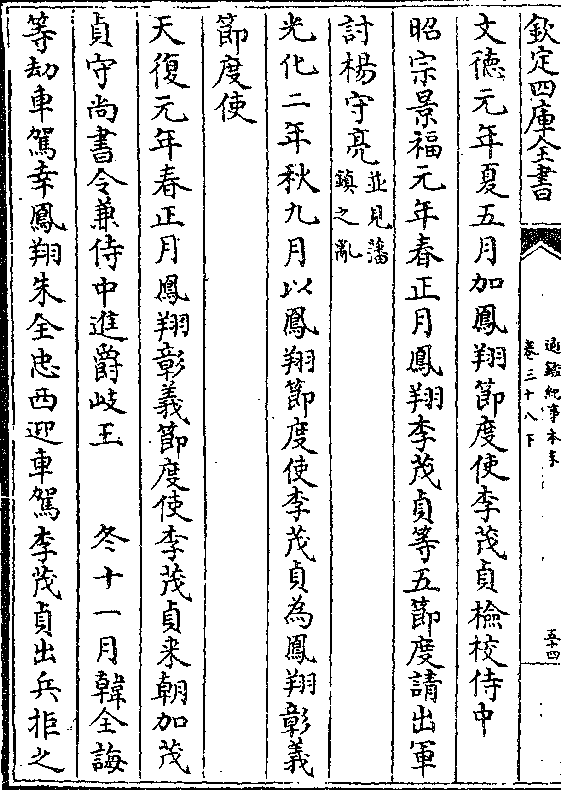 欽定四庫全書
通鑑紀事本末
卷三十八下
五十四
文德元年夏五月加鳳翔節度使李茂貞檢校侍中
昭宗景福元年春正月鳳翔李茂貞等五節度請出軍
討楊守亮並見藩鎮之亂
光化二年秋九月以鳳翔節度使李茂貞為鳳翔彰義
節度使
天復元年春正月鳳翔彰義節度使李茂貞来朝加茂
貞守尚書令兼侍中進爵岐王 冬十一月韓全誨
等劫車駕幸鳳翔朱全忠西迎車駕李茂貞出兵拒之